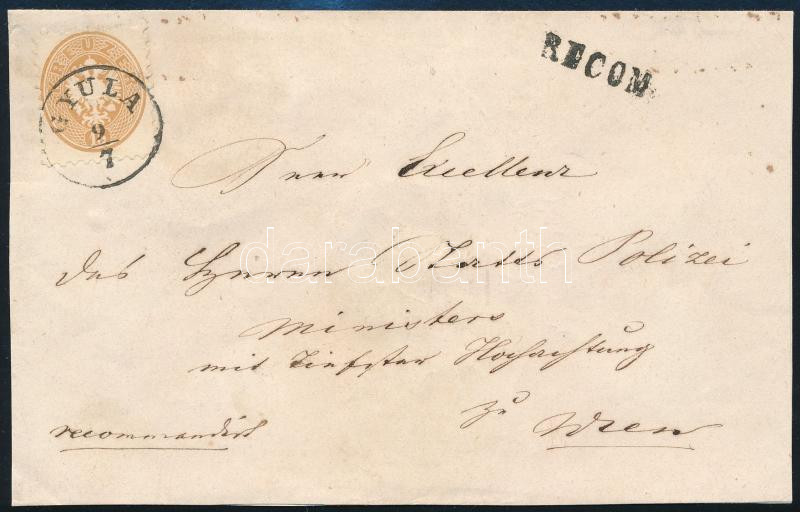 KREUZER
GYULA
9/7
RECOM
Seiner Excellenz
des Herren Staats Polizei
Ministers
mit tiefster Hochachtung
zu
Wien
recommandirt
darabanth